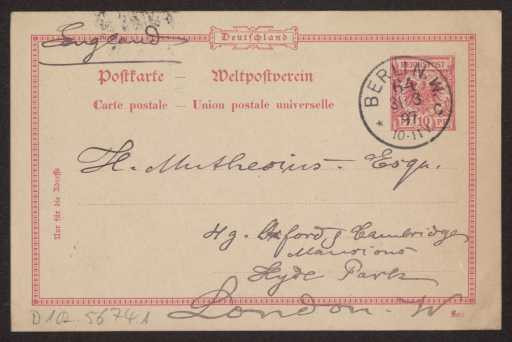 England
Deutschland
Postkarte — Weltpostverein
Carte postale — Union postale universelle
REICHSPOST
10 PF
BERLIN, N.W.
64
31 3
97
10-11 V
* C
H. Muthesius. Esqu.
Nur für die Adresse
4g. Oxford & Cambridge
Mansions
Hyde Park
London. W
D 102-5674.1